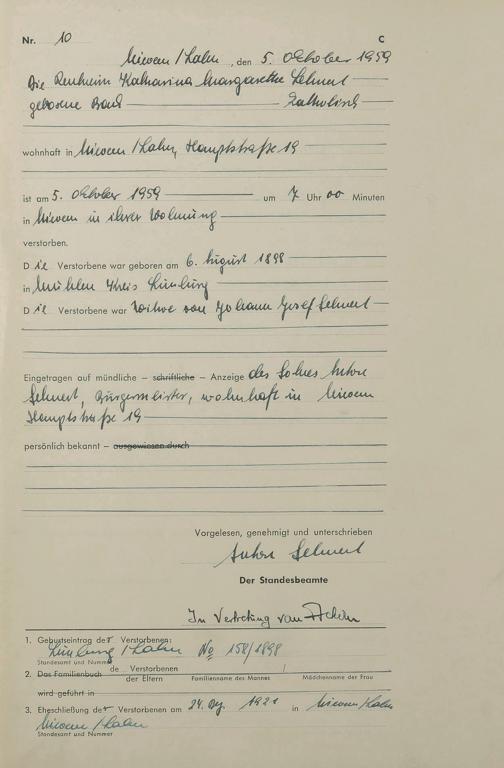 Nr. 10 C
Niedern / Lahn, den 5. Oktober 1959
Die Rentnerin Katharina Margarethe Lehnert
geborene katholisch
wohnhaft in / Lahn, Hauptstraße 19
ist am 5. Oktober 1959 um 7 Uhr 00 Minuten
in in ihrer Wohnung
verstorben.
Die Verstorbene war geboren am 6. August 1898
in Mühlen Kreis Limburg
Die Verstorbene war Witwe von Johann Josef Lehnert
Eingetragen auf mündliche – schriftliche – Anzeige des Sohnes Anton
Lehnert, Bürgermeister, wohnhaft in
Hauptstraße 19
persönlich bekannt – ausgewiesen durch
Vorgelesen, genehmigt und unterschrieben
Anton Lehnert
Der Standesbeamte
In Vertretung
1. Geburtseintrag der Verstorbenen:
Limburg / Lahn No 158/1898
Standesamt und Nummer
2. Das Familienbuch de Verstorbenen
der Eltern Familienname des Mannes / Mädchenname der Frau
wird geführt in
3. Eheschließung der Verstorbenen am 24. 1921 in / Lahn
/ Lahn
Standesamt und Nummer